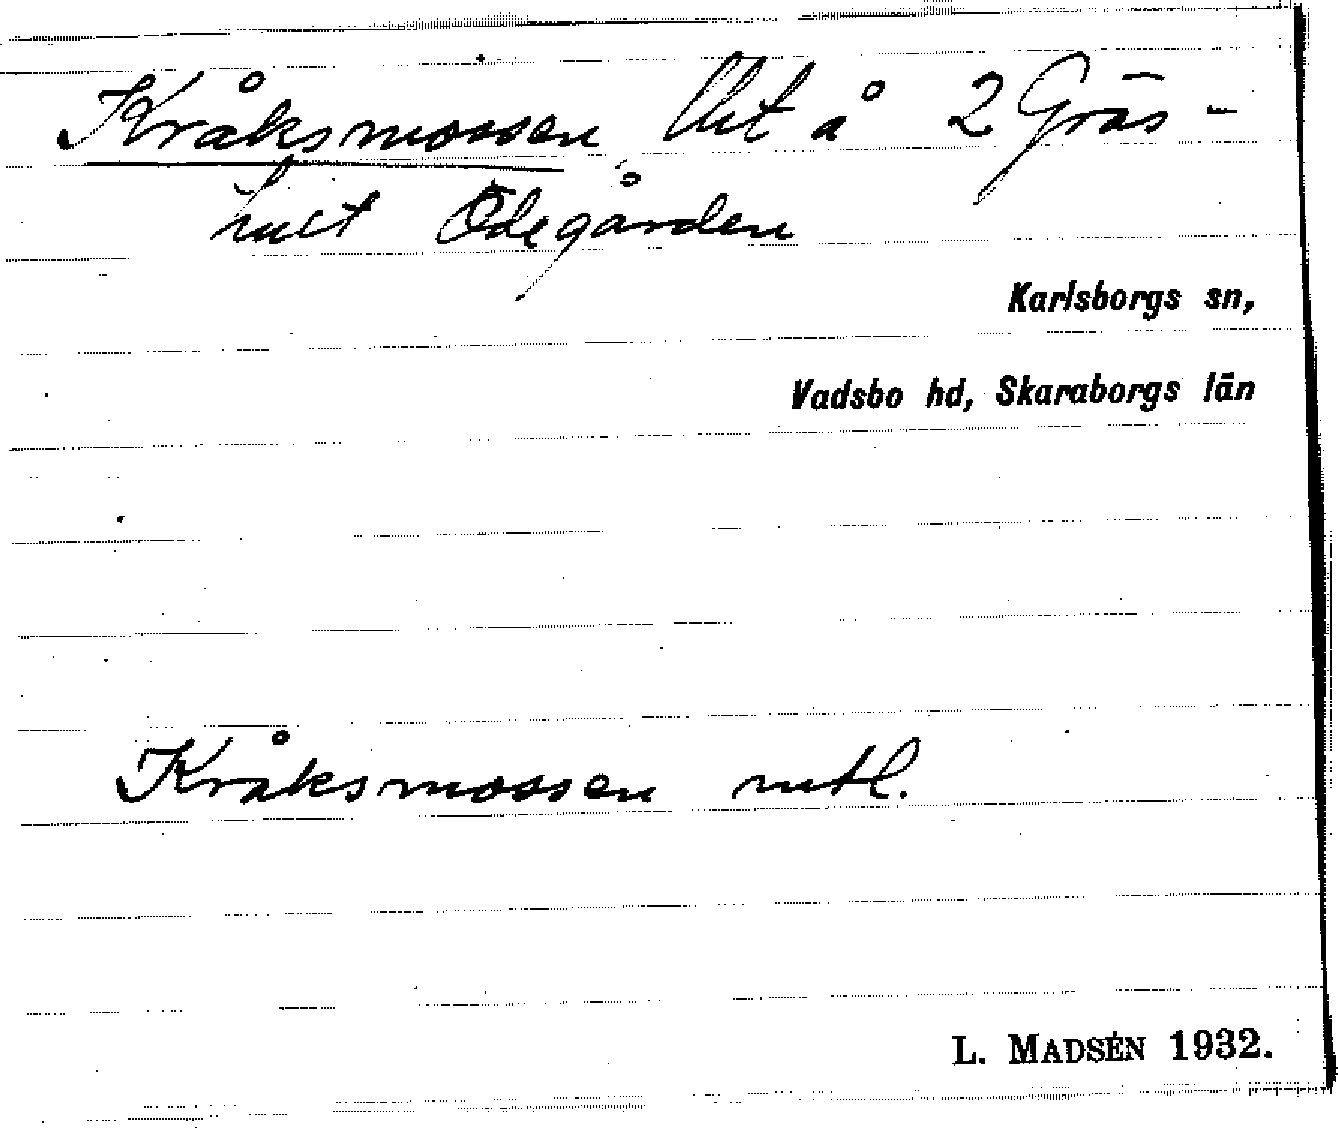 Kråksmossen, Utt å 2 Gräs-
hult Ödegården
Karlsborgs sn,
Vadsbo hd, Skaraborgs län
Kråksmossen mtl.
L. MADSÉN 1932.